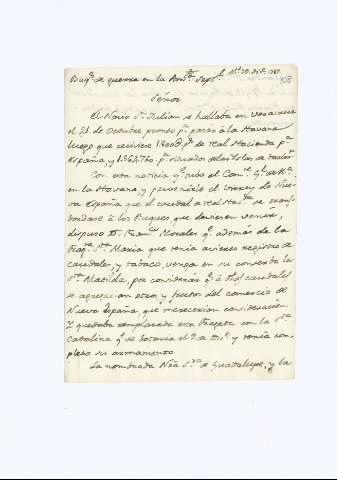 Buqs. de guerra en la Amca. Septl.
Señor
El Navio Sn. Julian se hallaba en Veracruz
el 21 de Octubre pronto pa. pasar á la Havana
luego que reciviese de real Hacienda pa.
España y situados de Islas de
Con esta noticia qe. tubo el Comte. Gl. de Ma.
en la Havana y prevenirle el virrey de Nue-
va España que el caudal de real Hazda. se trans-
bordase á los Buques que devieren venir,
dispuso Dn. Franco. Morales qe. además de la
Fragta. Sta. Maria que tenia avierto registro de
caudales, y tabaco, venga en su conserva la
Sta. Matilde, por considerar qe. á los caudales
se agregarian otros, y frutos del comercio de
Nueva España que merecerian consideracion.
Y quedaba remplazada esta Fragata con la Sta.
Catalina qe. se botaria el 9 de y tenia com-
pleto su armamento
La nombrada Nra. Sra. de Guadalupe, y la